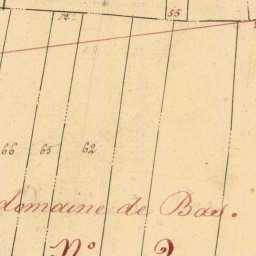 55
66 65 62
domaine de Bas.
N° 2